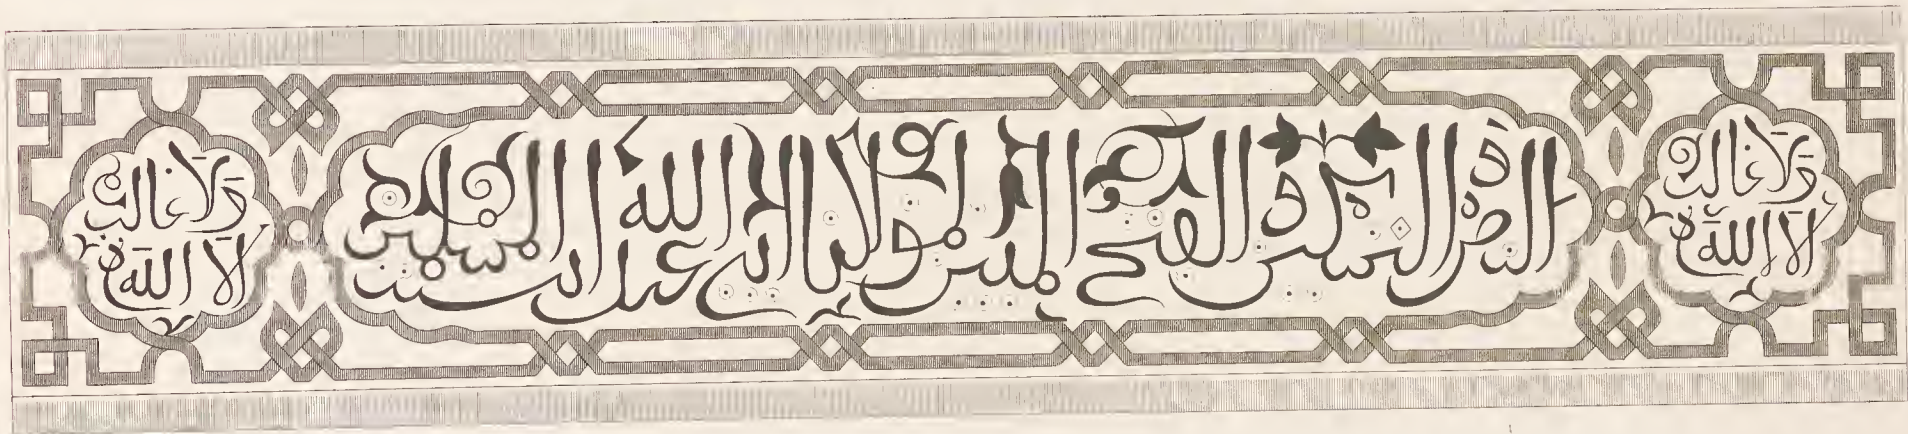 ولا غالب
الا الله
النصر والتمكين والفتح المبين لمولانا ابي عبد الله امير المسلمين
ولا غالب
الا الله